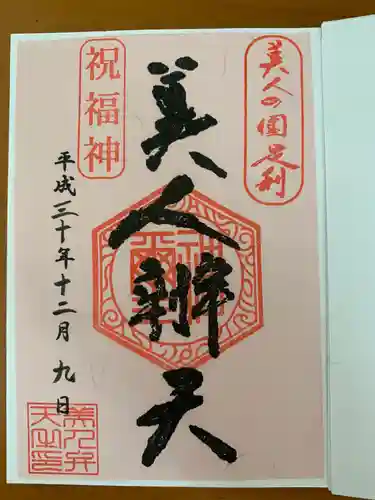 美人の國足利
美人辨天
祝福神
平成三十年十二月九日
美人弁
天之印